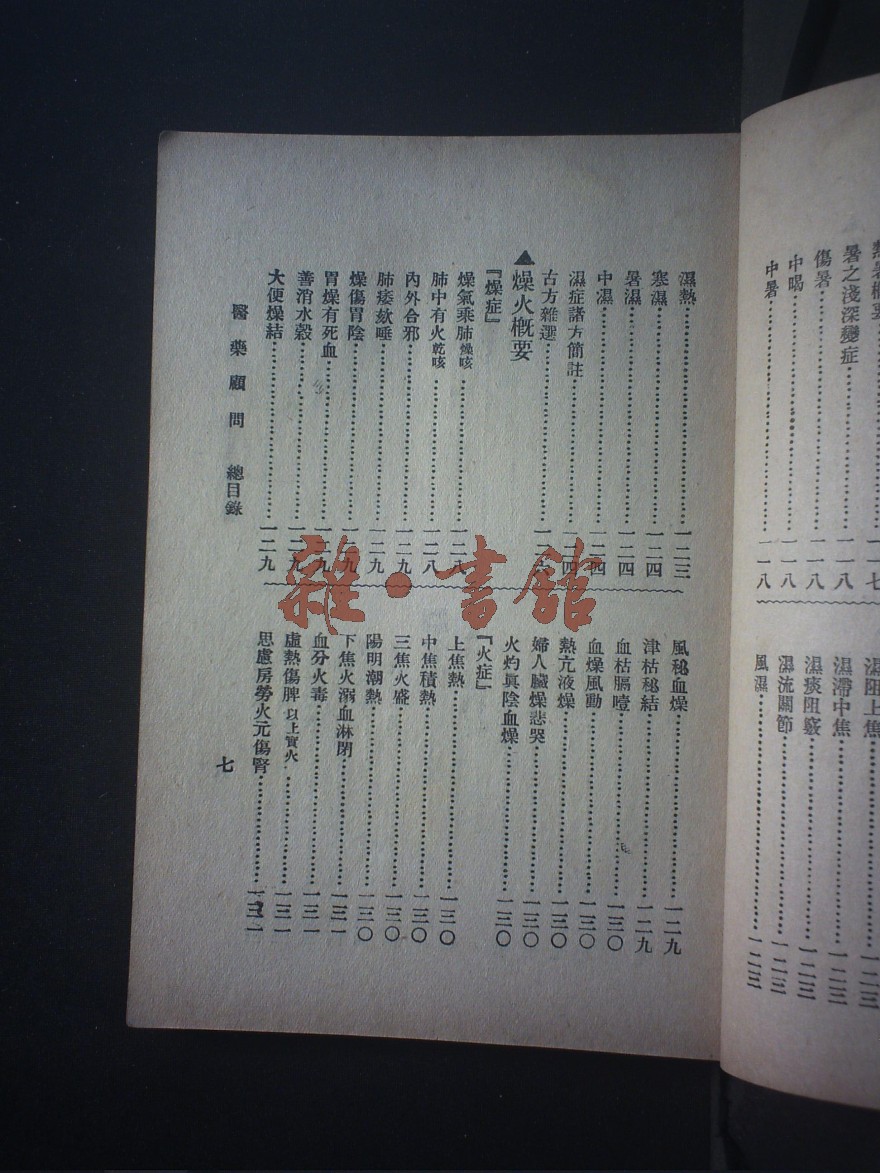 暑之淺深變症…一一八
傷暑…一一八
中暍…一一八
中暑…一一八
濕阻上焦…一二三
濕滯中焦…一二三
濕痰阻竅…一二三
濕流關節…一二三
風濕…一二三
濕熱…一二三
寒濕…一二四
暑濕…一二四
中濕…一二四
濕症諸方簡註…一二四
古方雜選…一二六
▲燥火概要
『燥症』
燥氣乘肺燥咳…一二八
肺中有火乾咳…一二八
內外合邪…一二九
肺痿欬唾…一二九
燥傷胃陰…一二九
胃燥有死血…一二九
善消水穀…一二九
大便燥結…一二九
風秘血燥…一二九
津枯秘結…一二九
血枯膈噎…一三〇
血燥風動…一三〇
熱亢液燥…一三〇
婦人臟燥悲哭…一三〇
火灼眞陰血燥…一三〇
『火症』
上焦熱…一三〇
中焦積熱…一三〇
三焦火盛…一三〇
陽明潮熱…一三〇
下焦火溺血淋閉…一三一
血分火毒…一三一
虛熱傷脾以上實火…一三一
思慮房勞火元傷腎…一三一
醫藥顧問 總目錄
七
雜·書館